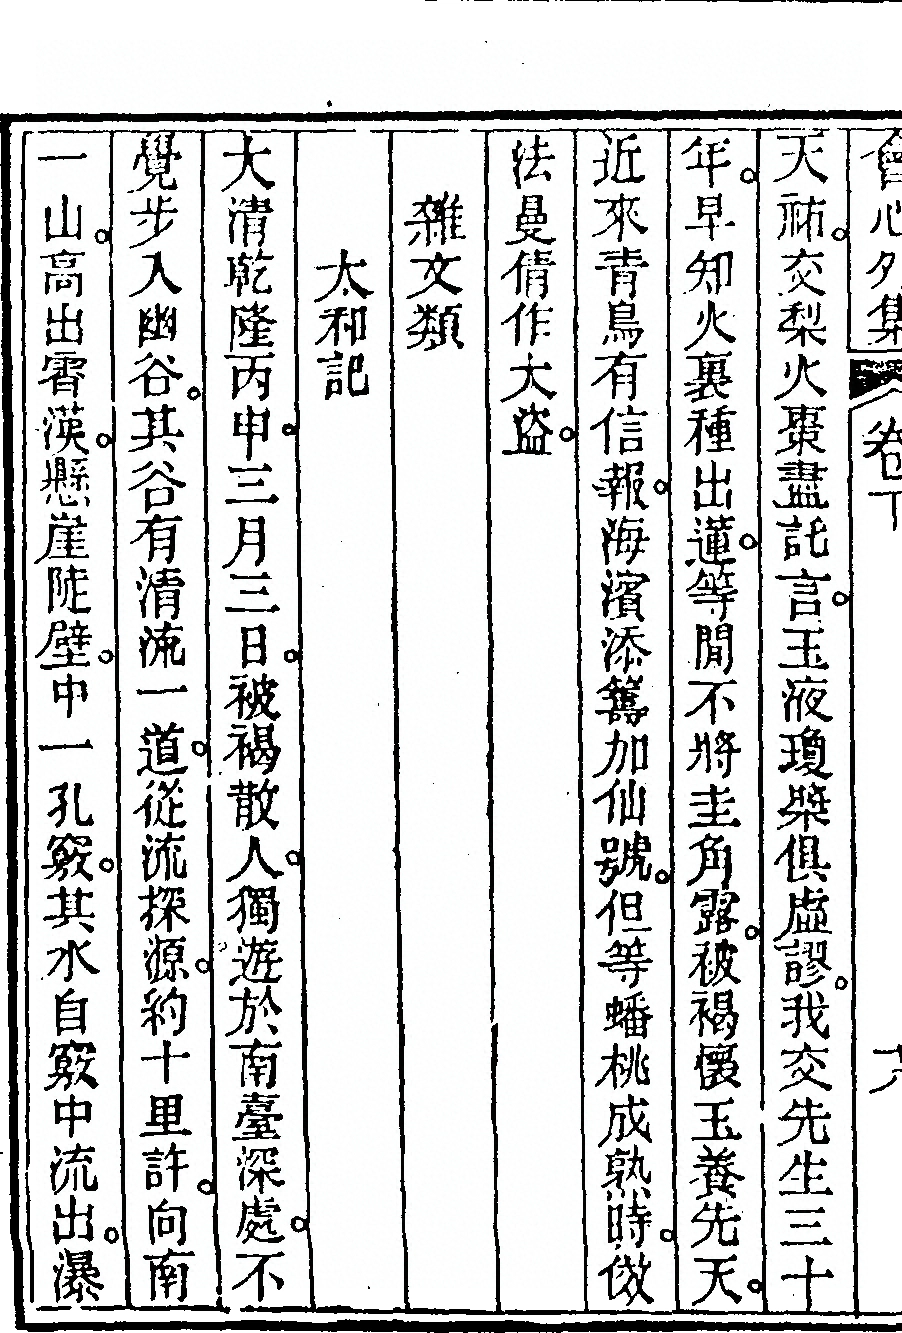 會心外集 卷下 十八
天祐交梨火棗盡託言玉液瓊漿俱虛謬我交先生三十
年早知火裏種出蓮等閒不將圭角露被褐懷玉養先天
近來青鳥有信報海濱添籌加仙號但等蟠桃成熟時倣
法曼倩作大盜
雜文類
太和記
大清乾隆丙申三月三日被褐散人獨遊於南臺深處不
覺步入幽谷其谷有清流一道從流探源約十里許向南
一山高出霄漢懸崖陡壁中一孔竅其水自竅中流出瀑